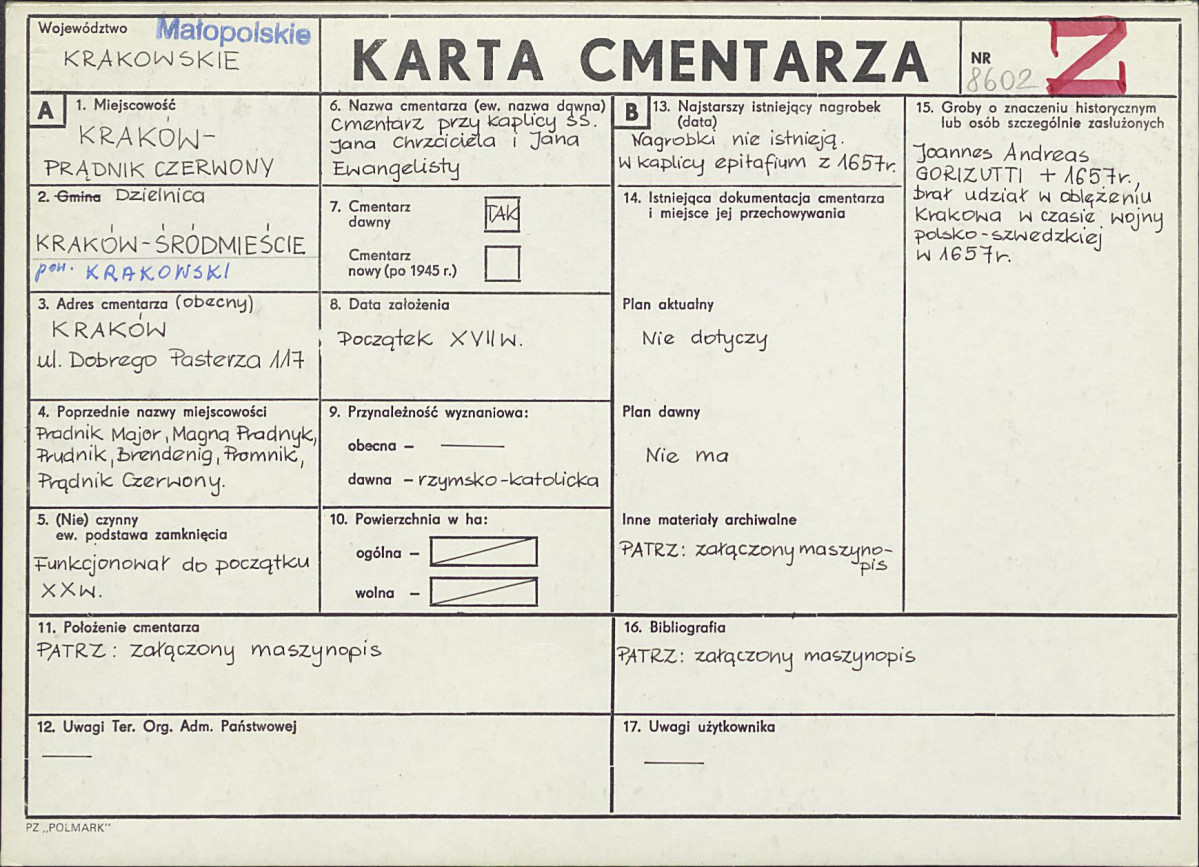 Województwo Małopolskie
KRAKOWSKIE
KARTA CMENTARZA
NR
8602
Z
A
1. Miejscowość
KRAKÓW-
PRĄDNIK CZERWONY
2. Gmina Dzielnica
KRAKÓW-ŚRÓDMIEŚCIE
pow. KRAKOWSKI
3. Adres cmentarza (obecny)
KRAKÓW
ul. Dobrego Pasterza 117
4. Poprzednie nazwy miejscowości
Pradnik Major, Magna Pradnyk,
Prudnik, Brendenig, Promnik,
Prądnik Czerwony.
5. (Nie) czynny
ew. podstawa zamknięcia
Funkcjonował do początku
XXw.
6. Nazwa cmentarza (ew. nazwa dawna)
Cmentarz przy kaplicy ŚS.
Jana Chrzciciela i Jana
Ewangelisty
7. Cmentarz
dawny
TAK
Cmentarz
nowy (po 1945 r.)
8. Data założenia
Początek XVII w.
9. Przynależność wyznaniowa:
obecna – —
dawna – rzymsko-katolicka
10. Powierzchnia w ha:
ogólna –
wolna –
B
13. Najstarszy istniejący nagrobek
(data)
Nagrobki nie istnieją.
W kaplicy epitafium z 1657r.
14. Istniejąca dokumentacja cmentarza
i miejsce jej przechowywania
Plan aktualny
Nie dotyczy
Plan dawny
Nie ma
Inne materiały archiwalne
PATRZ: załączony maszyno-
pis
15. Groby o znaczeniu historycznym
lub osób szczególnie zasłużonych
Joannes Andreas
GORIZUTTI + 1657r.,
brał udział w oblężeniu
Krakowa w czasie wojny
polsko-szwedzkiej
w 1657r.
11. Położenie cmentarza
PATRZ: załączony maszynopis
16. Bibliografia
PATRZ: załączony maszynopis
12. Uwagi Ter. Org. Adm. Państwowej
—
17. Uwagi użytkownika
—
PZ „POLMARK"